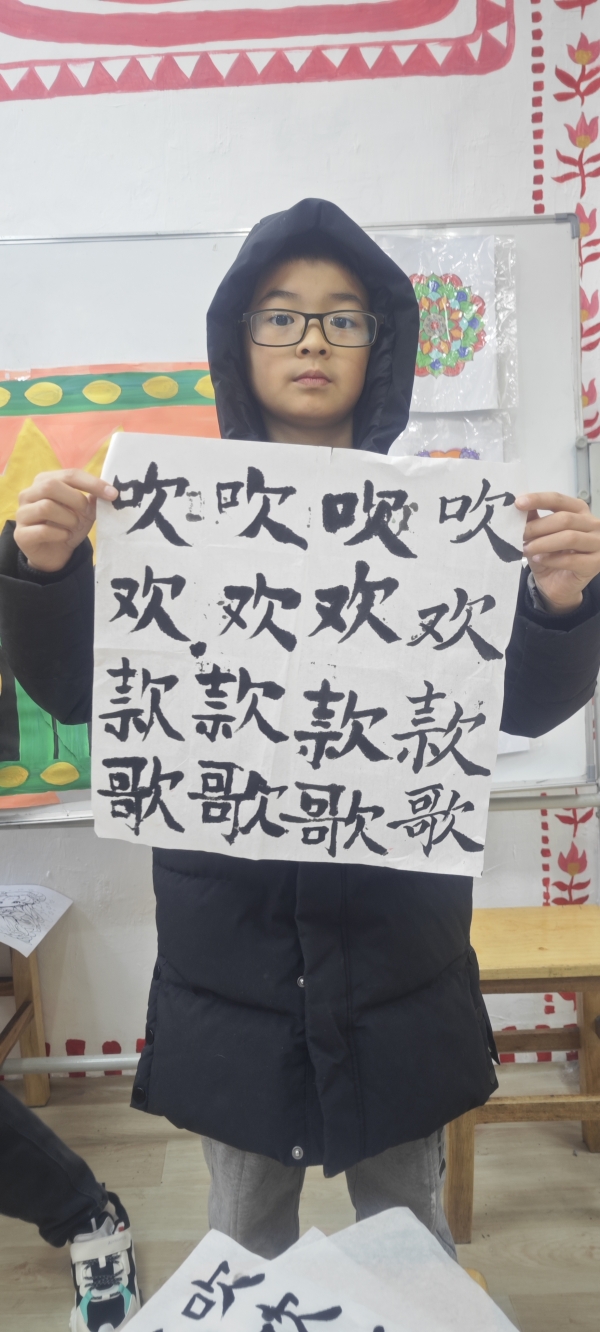 吹 吹 吹 吹
欢 欢 欢 欢
款 款 款 款
歌 歌 歌 歌
吹